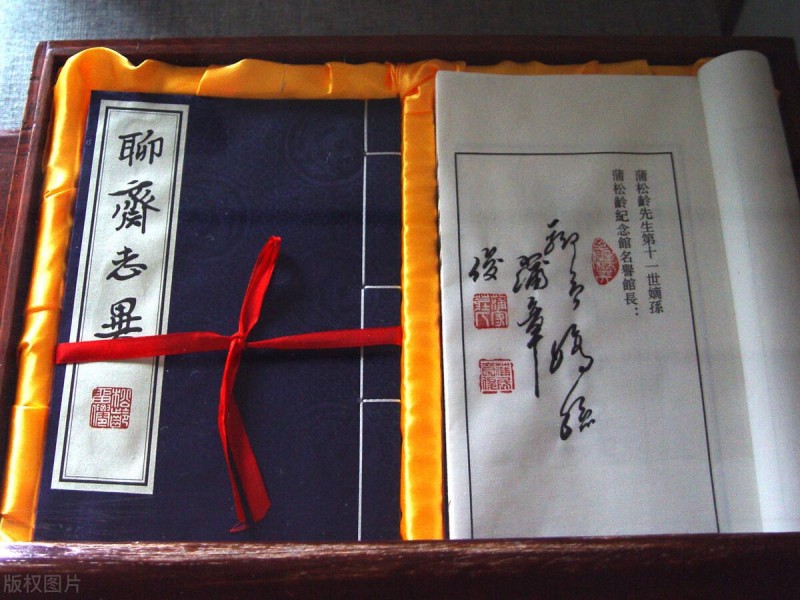 聊齋志異
蒲松齡先生第十一世嫡孫
蒲松齡紀念館名譽館長：
聊齋嫡孫
蒲章
俊
版权图片